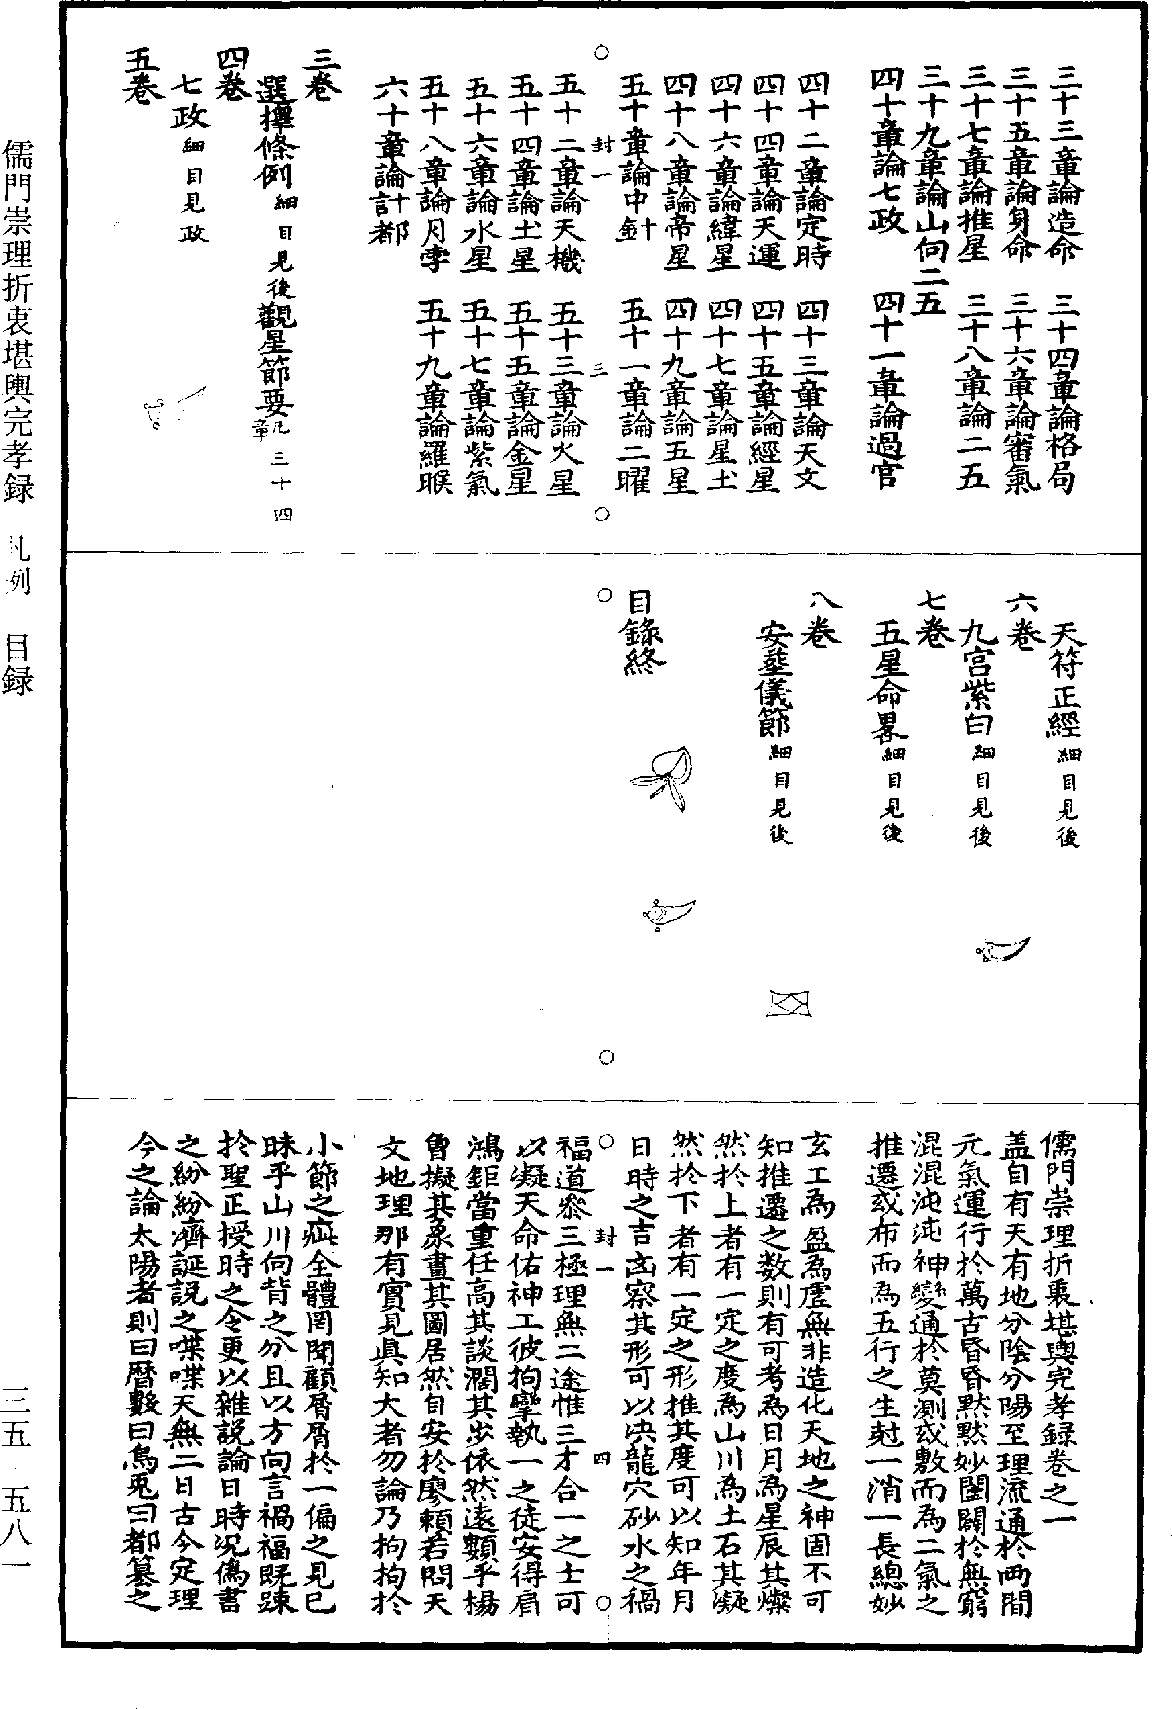 三十三章論造命　三十四章論格局
三十五章論身命　三十六章論審氣
三十七章論推星　三十八章論二五
三十九章論山向二五
四十章論七政　四十一章論過宮
四十二章論定時　四十三章論天文
四十四章論天運　四十五章論經星
四十六章論緯星　四十七章論星土
四十八章論帝星　四十九章論五星
五十章論中針　五十一章論二曜
封一　三
五十二章論天機　五十三章論火星
五十四章論土星　五十五章論金星
五十六章論水星　五十七章論紫氣
五十八章論月孛　五十九章論羅睺
六十章論計都
三卷
選擇條例細目見後觀星節要凡三十四章
四卷
七政細目見政
五卷
天符正經細目見後
六卷
九宮紫白細目見後
七卷
五星命畧細目見後
八卷
安葬儀節細目見後
目錄終
儒門崇理折衷堪輿完孝録卷之一
盖自有天有地分陰分陽至理流通於兩間
元氣運行於萬古昏昏默默妙闔闢於無窮
混混沌沌神變通於莫測或敷而為二氣之
推遷或布而為五行之生尅一消一長總妙
玄工為盈為虛無非造化天地之神固不可
知推遷之数則有可考為日月為星辰其燦
然於上者有一定之度為山川為土石其凝
然於下者有一定之形推其度可以知年月
日時之吉凶察其形可以决龍穴砂水之禍
封一　四
福道叅三極理無二途惟三才合一之士可
以凝天命佑神工彼拘攣執一之徒安得肩
鴻鉅當重任高其談濶其步依然遠顙乎楊
曾擬其象畫其圖居然自安於廖賴若問天
文地理那有實見真知大者勿論乃拘拘於
小節之疵全體罔聞顧屑屑於一偏之見已
昧乎山川向背之分且以方向言禍福既踈
於聖正授時之令更以雜説論日時况僞書
之紛紛濟誕説之喋喋天無二日古今定理
今之論太陽者則曰曆數曰烏兎曰都纂之
儒門崇理折衷堪輿完孝録　凡例　目録
三五　五八一